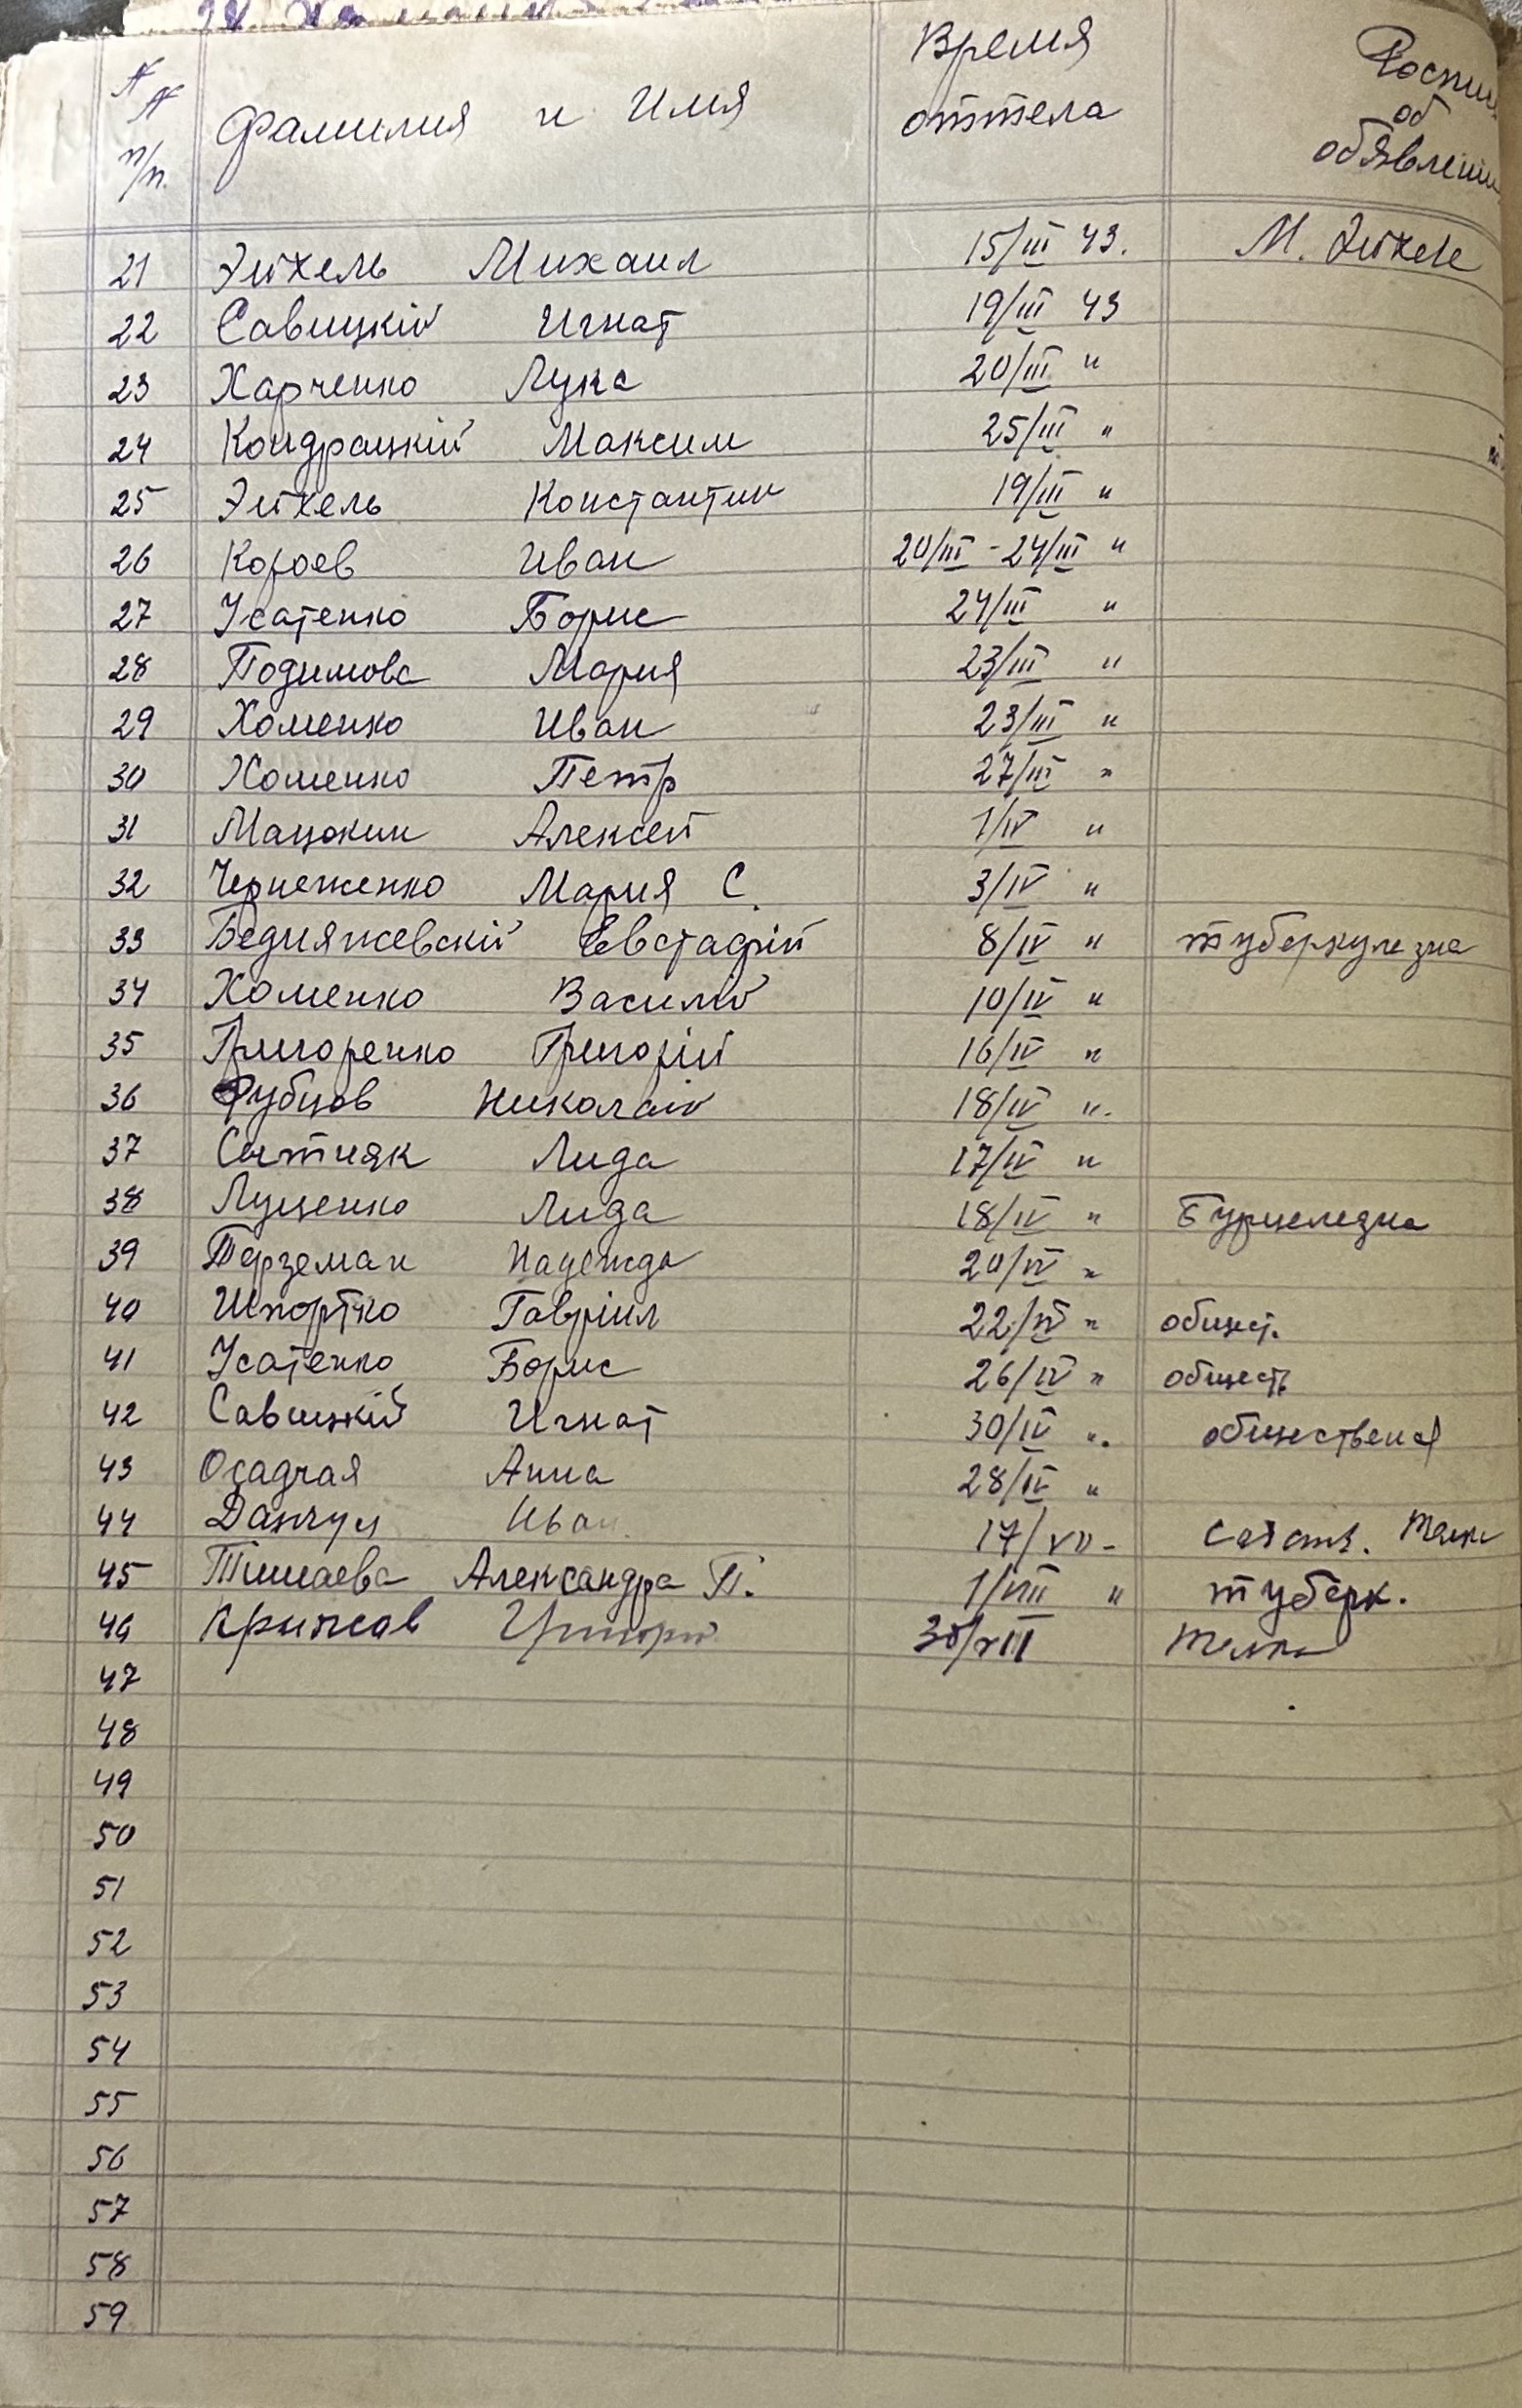 №№ п/п. Фамилия и Имя Время оттела Роспи об обявлени
21 Эйхель Михаил 15/III 43. М. Эйхель
22 Савицкій Игнат 19/III 43
23 Харченко Лука 20/III "
24 Кондрацкій Максим 25/III "
25 Эйхель Константин 19/III "
26 Короев Иван 20/III - 24/III "
27 Усатенко Борис 24/III "
28 Подимова Мария 23/III "
29 Хоменко Иван 23/III "
30 Хоменко Петр 27/III "
31 Мацокин Алексей 1/IV "
32 Чернеженко Мария С. 3/IV "
33 Бедняжевскій Евстафій 8/IV " туберкулезна
34 Хоменко Василій 10/IV "
35 Григоренко Григорій 16/IV "
36 Рубцов Николай 18/IV ".
37 Сытняк Лида 17/IV "
38 Луценко Лида 18/IV "
39 Терземан Надежда 20/IV "
40 Шпортко Гавріил 22/IV " общест.
41 Усатенко Борис 26/IV " общесть
42 Савицкій Игнат 30/IV ". общественая
43 Осадчая Анна 28/IV "
44 Данчул Иван 17/VII -
45 Тімшаева Александра П. 1/VIII " туберк.
46 Крыжов 30/XII телка
47
48
49
50
51
52
53
54
55
56
57
58
59